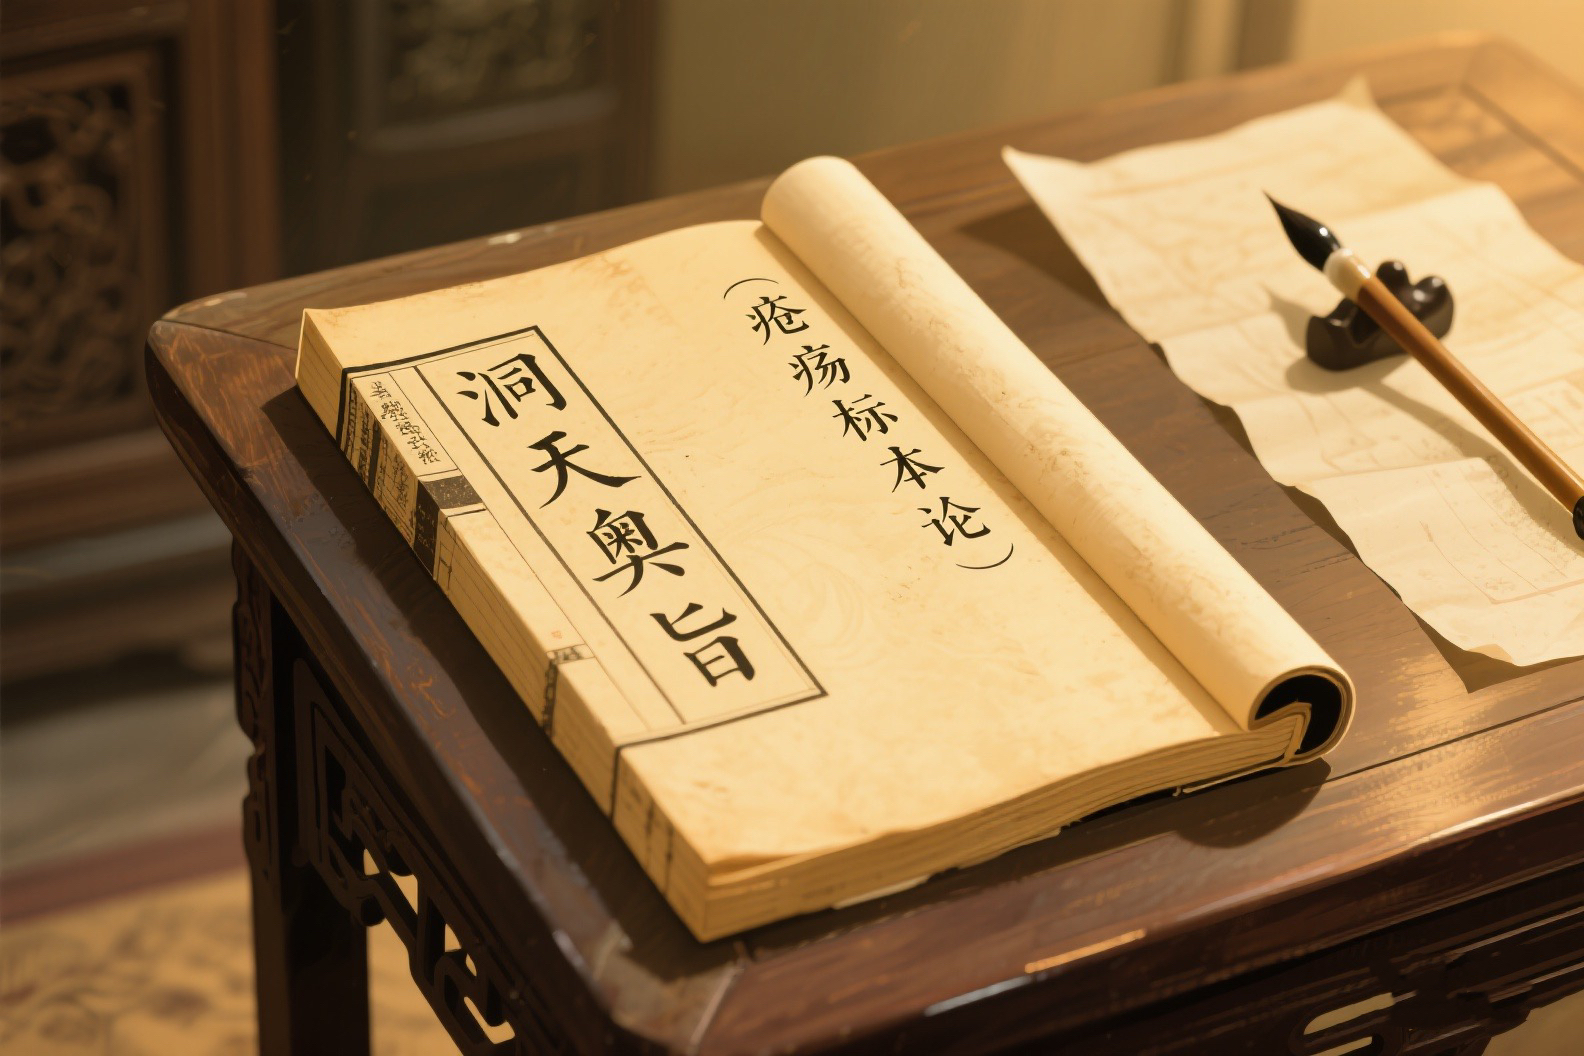 洞天奥旨
（疮疡标本论）